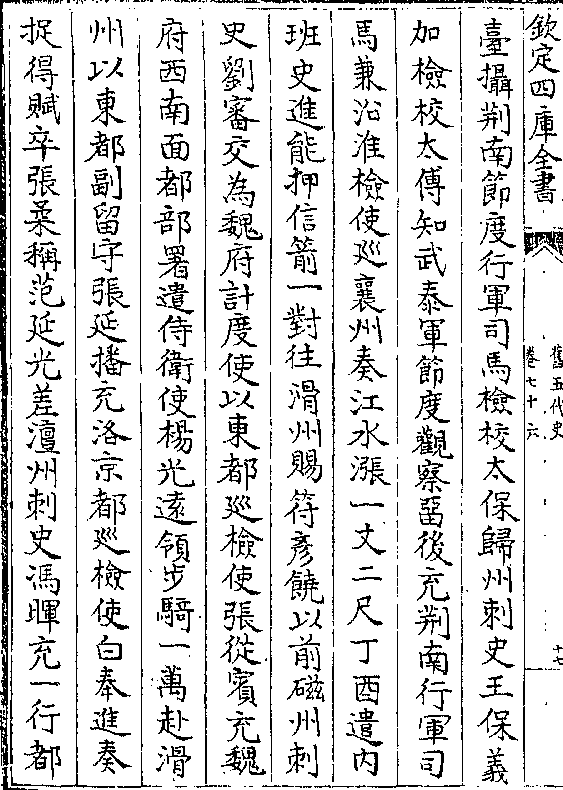 欽定四庫全書
舊五代史
卷七十六
十七
臺攝荆南節度行軍司馬檢校太保歸州刺史王保義
加檢校太傅知武泰軍節度觀察留後充荆南行軍司
馬兼沿淮檢使廵襄州奏江水漲一丈二尺丁酉遣内
班史進能押信箭一對往滑州賜符彦饒以前磁州刺
史劉審交為魏府計度使以東都廵檢使張從賓充魏
府西南面都部署遣侍衛使楊光遠領步騎一萬赴滑
州以東都副留守張延播充洛京都廵檢使白奉進奏
捉得賊卒張柔稱范延光差澶州刺史馮暉充一行都